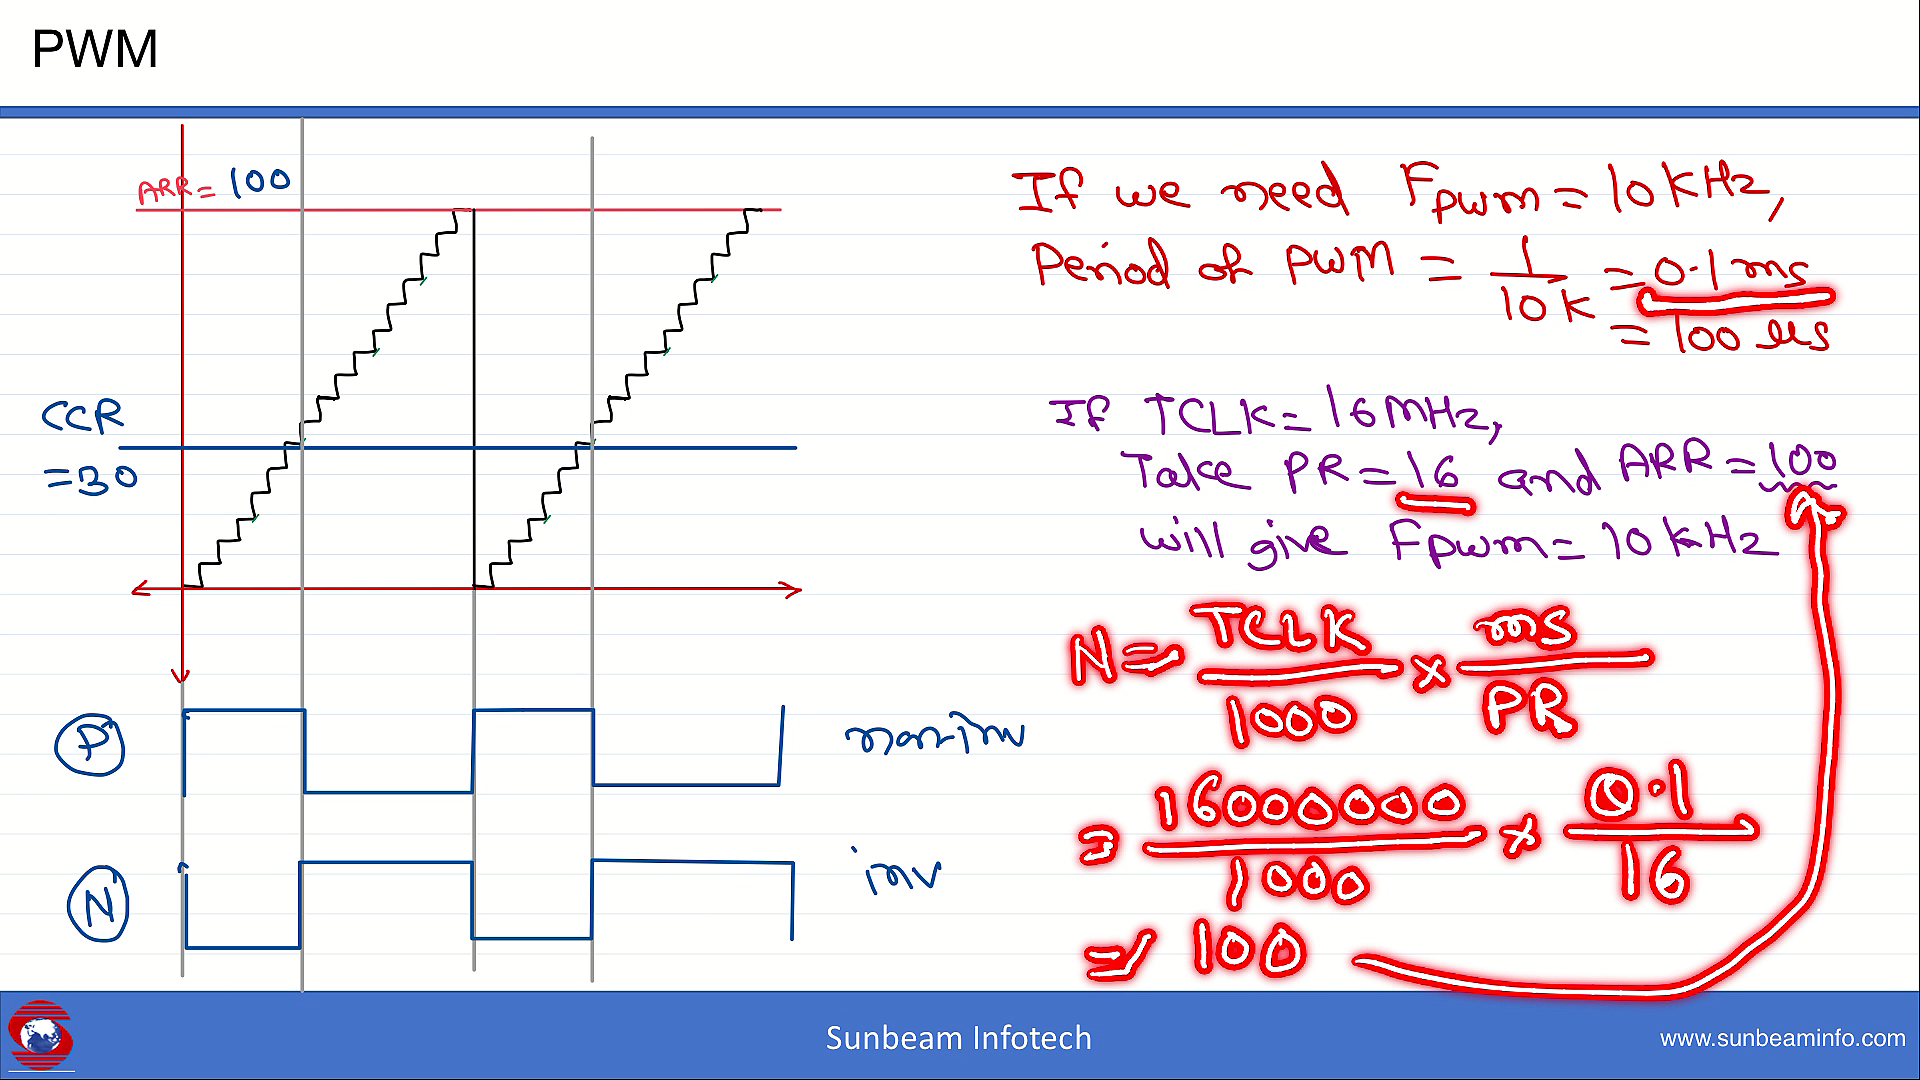 PWM
ARR = 100
CCR
= 30
P
non-inv
N
inv
If we need Fpwm = 10 KHz,
Period of PWM = 1/10K = 0.1 ms
= 100 us
If TCLK = 16 MHz,
Take PR = 16 and ARR = 100
will give Fpwm = 10 kHz
N => TCLK/1000 × ms/PR
=> 16000000/1000 × 0.1/16
=> 100
Sunbeam Infotech
www.sunbeaminfo.com